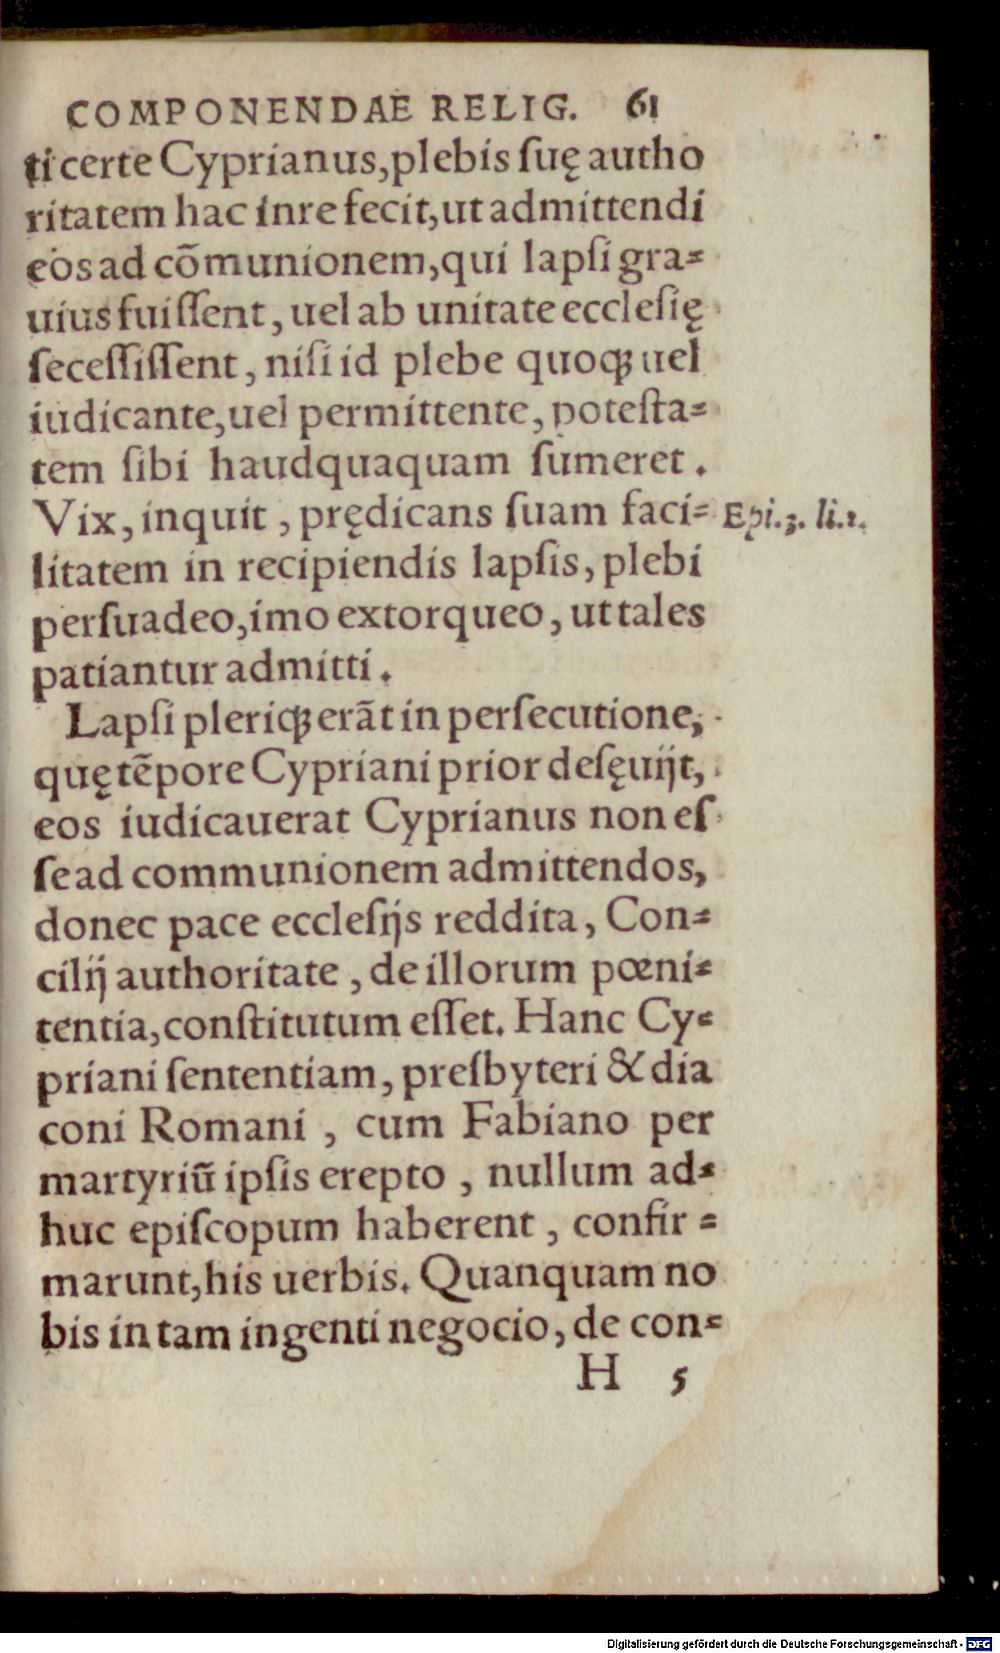 COMPONENDAE RELIG. 61
ti certe Cyprianus, plebis suę autho
ritatem hac in re fecit, ut admittendi
eos ad cõmunionem, qui lapſi gra⸗
uius fuiſſent, uel ab unitate eccleſię
ſeceſſiſſent, niſi id plebe quoqꝫ uel
iudicante, uel permittente, poteſta⸗
tem ſibi haudquaquam ſumeret.
Vix, inquit, prędicans ſuam faci⸗ Epi.3. li.1.
litatem in recipiendis lapſis, plebi
perſuadeo, imo extorqueo, ut tales
patiantur admitti.
Lapſi pleriqꝫ erãt in perſecutione,
quę tẽpore Cypriani prior deſęuijt,
eos iudicauerat Cyprianus non eſ
ſe ad communionem admittendos,
donec pace eccleſijs reddita, Con⸗
cilij authoritate, de illorum pœni⸗
tentia, conſtitutum eſſet. Hanc Cy⸗
priani ſententiam, preſbyteri & dia
coni Romani, cum Fabiano per
martyriũ ipſis erepto, nullum ad⸗
huc epiſcopum haberent, confir⸗
marunt, his uerbis. Quanquam no
bis in tam ingenti negocio, de con⸗
H 5
Digitalisierung gefördert durch die Deutsche Forschungsgemeinschaft - DFG